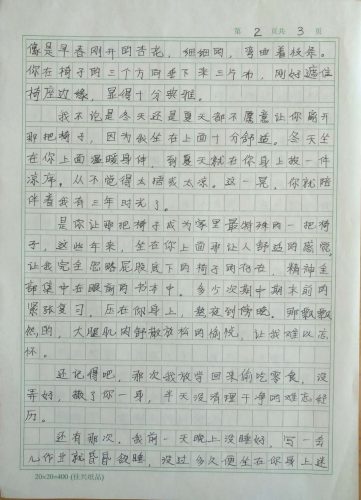 第 2 页共 3 页
像是早春刚开的杏花，细细的，弯曲着枝条。
你在椅子的三个方向垂下来三片布，刚好遮住
椅座边缘，显得十分典雅。
我不论是冬天还是夏天都不愿意让你离开
那把椅子，因为我坐在上面十分舒适。冬天坐
在你上面温暖身体，到夏天就在你身上放一件
凉席。从不觉得太捂或太凉。这一晃，你就陪
伴着我有三年时光了。
是你让那把椅子成为家里最特殊的一把椅
子，这些年来，坐在你上面那让人舒适的感觉
让我完全忽略屁股底下的椅子的存在，精神全
部集中在眼前的书本中。多少次期中期末前的
紧张复习，压在你身上，熬夜到傍晚。那软软
然的，大腿肌肉舒散放松的愉悦，让我难以忘
怀。
还记得吧，那次我放学回来偷吃零食，没
弄好，撒了你一身，半天没清理干净的难忘经
历。
还有那次，我前一天晚上没睡好，写一会
儿作业就昏昏欲睡，没过多久便坐在你身上迷
20×20=400